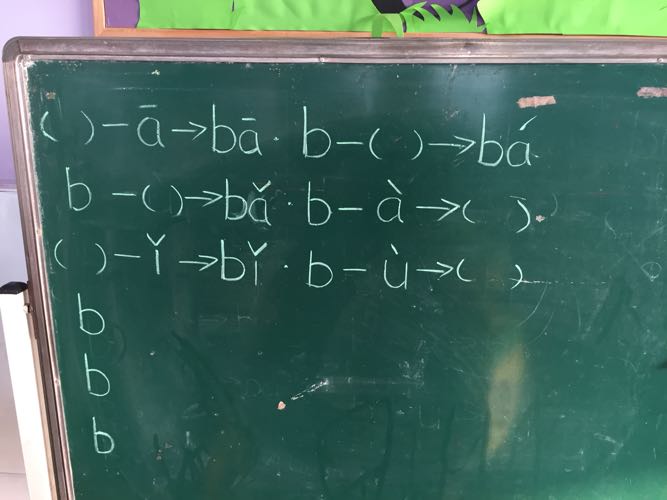 ( ) – ā → bā · b – ( ) → bá
b – ( ) → bǎ · b – à → ( )
( ) – ǐ → bǐ · b – ù → ( )
b
b
b